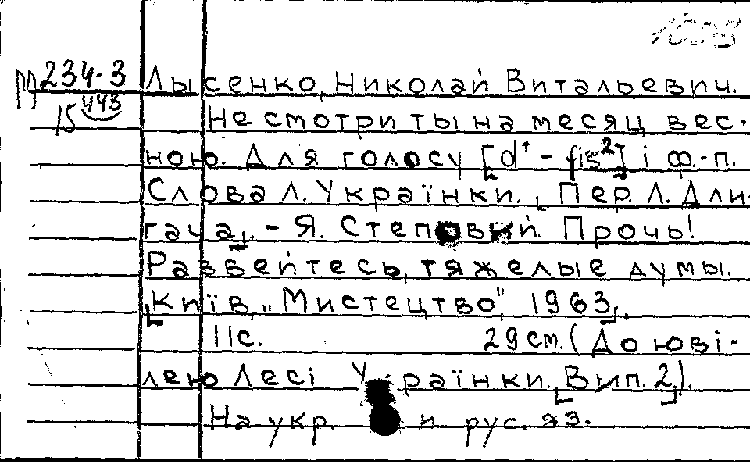 234-3 Лысенко, Николай Витальевич.
15 443
Не смотри ты на месяц вес-
ною. Для голосу [d¹ - fis²] і ф.-п.
Слова Л. Українки. [Пер. Л. Дли-
гача]. - Я. Степовый. Прочь!
Развейтесь, тяжелые думы.
[Київ, "Мистецтво" 1963].
11с. 29см. (До юві-
лею Лесі Українки. [Вип. 2]).
На укр. и рус. яз.